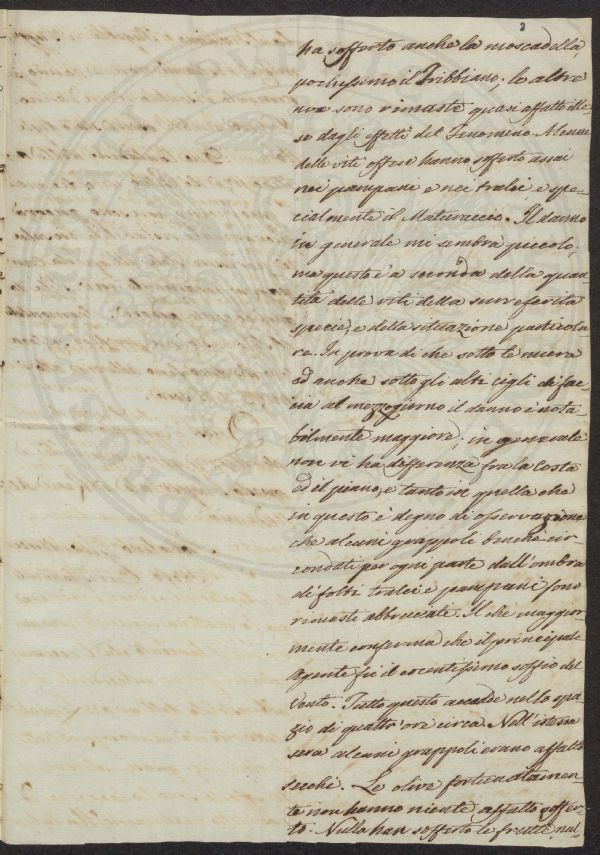 2
ha sofferto anche la moscadella,
pochissimo il Tribbiano; le altre
uve sono rimaste quasi affatto ille-
se dagli effetti del Fenomeno. Alcune
delle viti offese hanno sofferto assai
nei pampani e nei tralci, e spe-
cialmente il Maturaccio. Il danno
in generale mi sembra piccolo,
ma questo è a seconda della quan-
tità delle viti della surreferita
specie, e della situazione particola-
re. In prova di che sotto le mura
ed anche sotto gli alti cigli di fac-
cia al mezzogiorno il danno è nota-
bilmente maggiore; in generale
non vi ha differenza fra la Costa
ed il piano, e tanto in quella che
in questo è degno di osservazione
che alcuni grappoli benche cir-
condati per ogni parte dall'ombra
di folti tralci e pampani sono
rimasti abbruciati. Il che maggior-
mente conferma che il principale
agente fù il cocentissimo soffio del
Vento. Tutto questo accadde nello spa-
zio di quattr'ore circa. Nell'istessa
sera alcuni grappoli erano affatto
secchi. Le olive fortunatamen-
te non hanno niente affatto soffer-
to. Nulla han sofferto le frutte, nul-